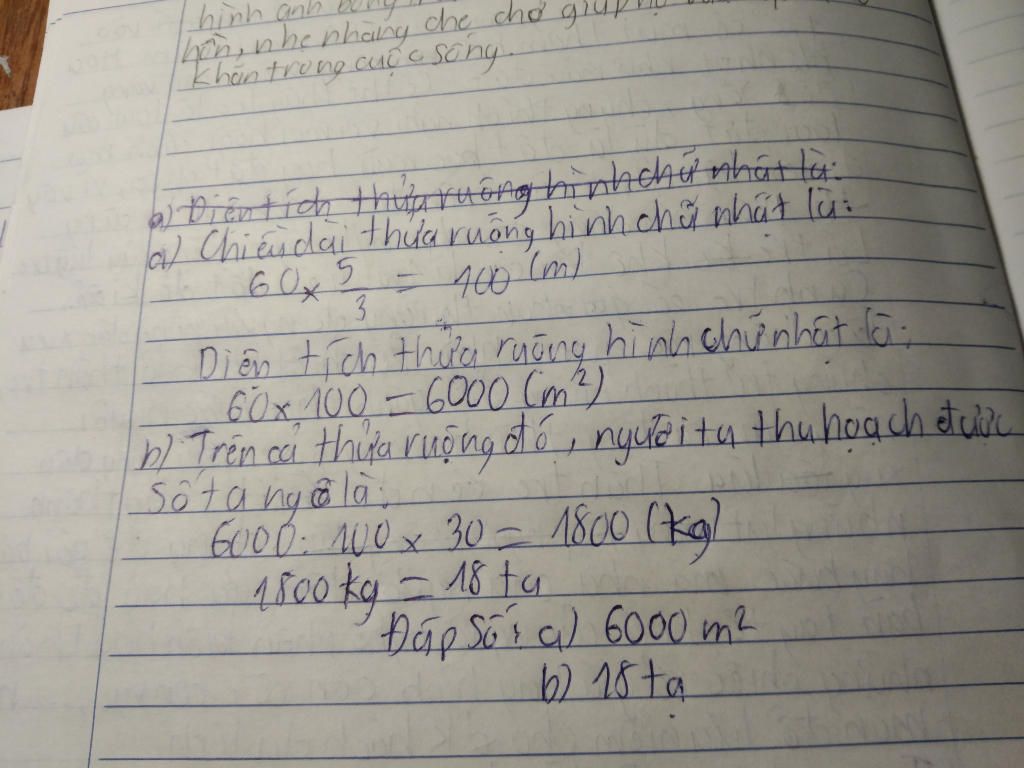 hình ảnh
hồn, nhẹ nhàng che chở giúp họ
khăn trong cuộc sống.
a) Diện tích thửa ruộng hình chữ nhật là:
a) Chiều dài thửa ruộng hình chữ nhật là:
60 × 5/3 = 100 (m)
Diện tích thửa ruộng hình chữ nhật là:
60 × 100 = 6000 (m²)
b) Trên cả thửa ruộng đó, người ta thu hoạch được
số tạ ngô là:
6000 : 100 × 30 = 1800 (kg)
1800 kg = 18 tạ
Đáp số: a) 6000 m²
b) 18 tạ